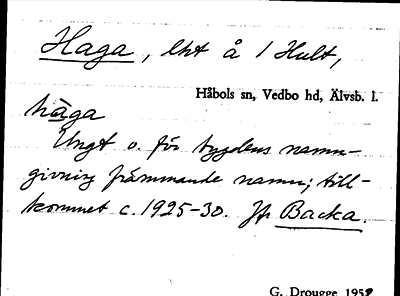 Haga, lht å 1 Hult,
Håbols sn, Vedbo hd, Älvsb. l.
hàga
Ungt o. för bygdens namn-
givning främmande namn; till-
kommet c. 1925-30. Jfr Backa.
G. Drougge 1959